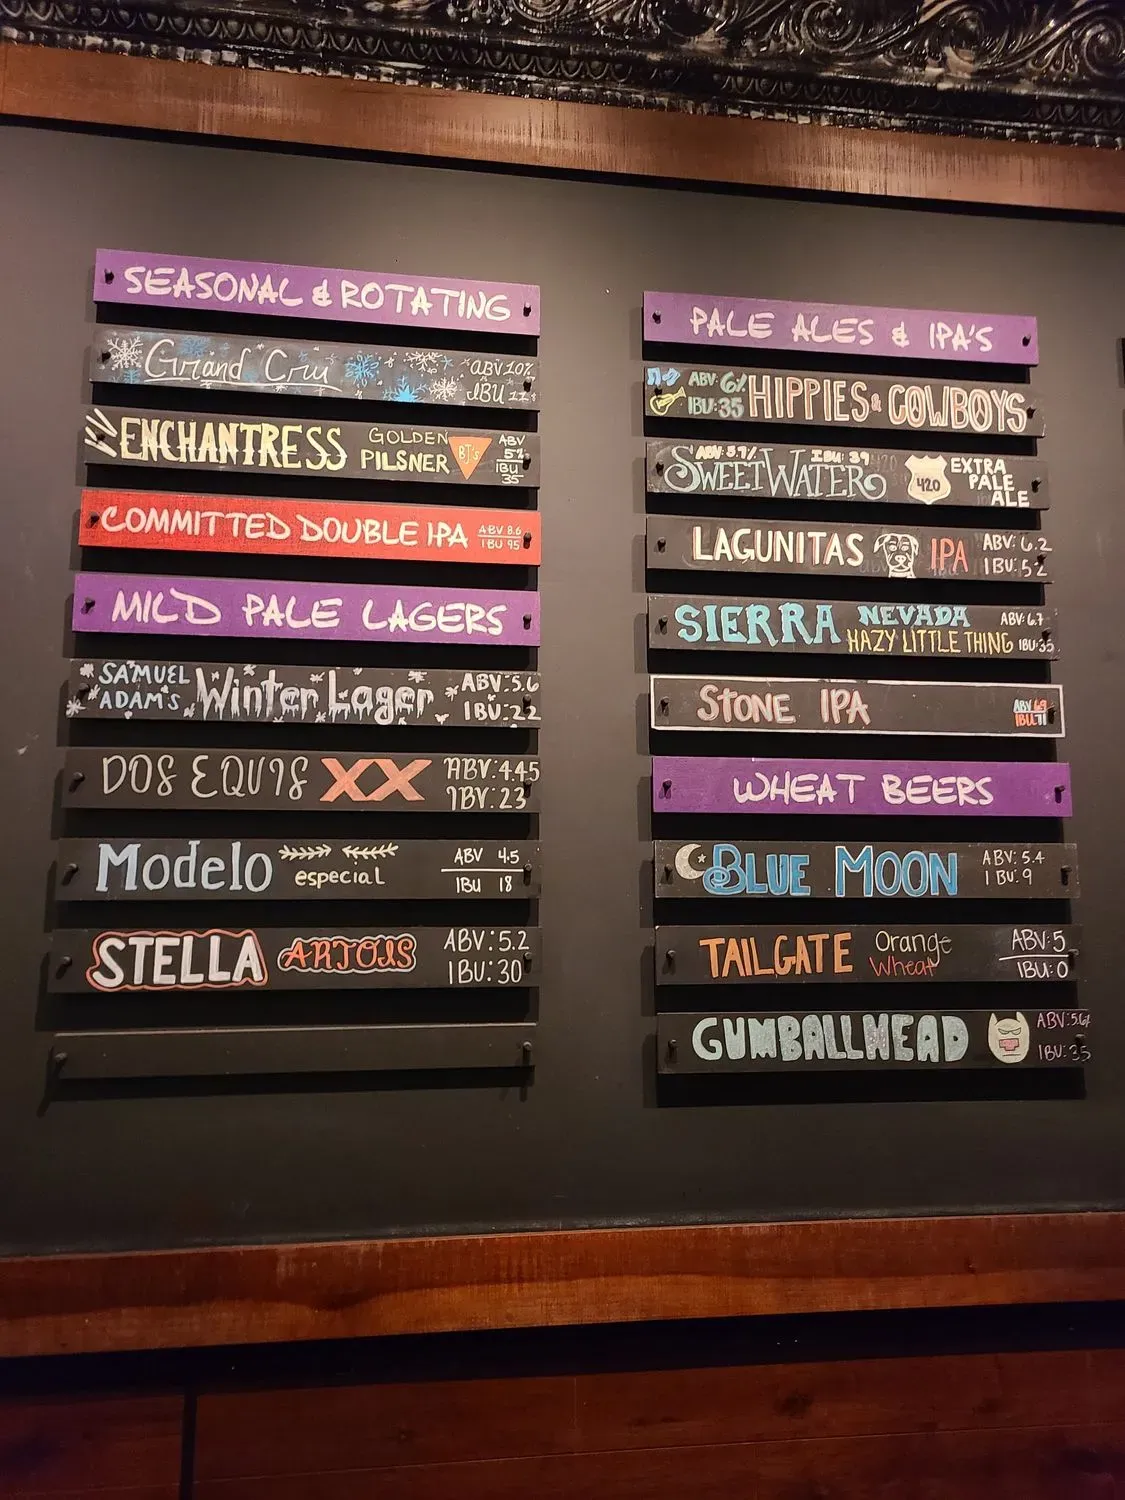 SEASONAL & ROTATING
Grand Cru
ABV 10%
IBU 22
ENCHANTRESS
GOLDEN
PILSNER
BJ's
ABV
5%
IBU
35
COMMITTED DOUBLE IPA
ABV 8.6
IBU 95
MILD PALE LAGERS
SAMUEL
ADAM'S
Winter Lager
ABV:5.6
IBV:22
DOS EQUIS XX
ABV:4.45
IBV:23
Modelo
especial
ABV 4.5
IBU 18
STELLA ARTOIS
ABV:5.2
IBU:30
PALE ALES & IPA'S
ABV: 6%
IBU:35
HIPPIES & COWBOYS
ABV:5.7%
IBU: 39
SWEETWATER
420
EXTRA
PALE
ALE
LAGUNITAS IPA
ABV: 6.2
IBU:52
SIERRA NEVADA
HAZY LITTLE THING
ABV: 6.7
IBU:35
STONE IPA
ABV 6.9
IBU:71
WHEAT BEERS
BLUE MOON
ABV: 5.4
IBU: 9
TAILGATE
Orange
Wheat
ABV: 5
IBU: 0
GUMBALLHEAD
ABV:5.6%
IBU: 35